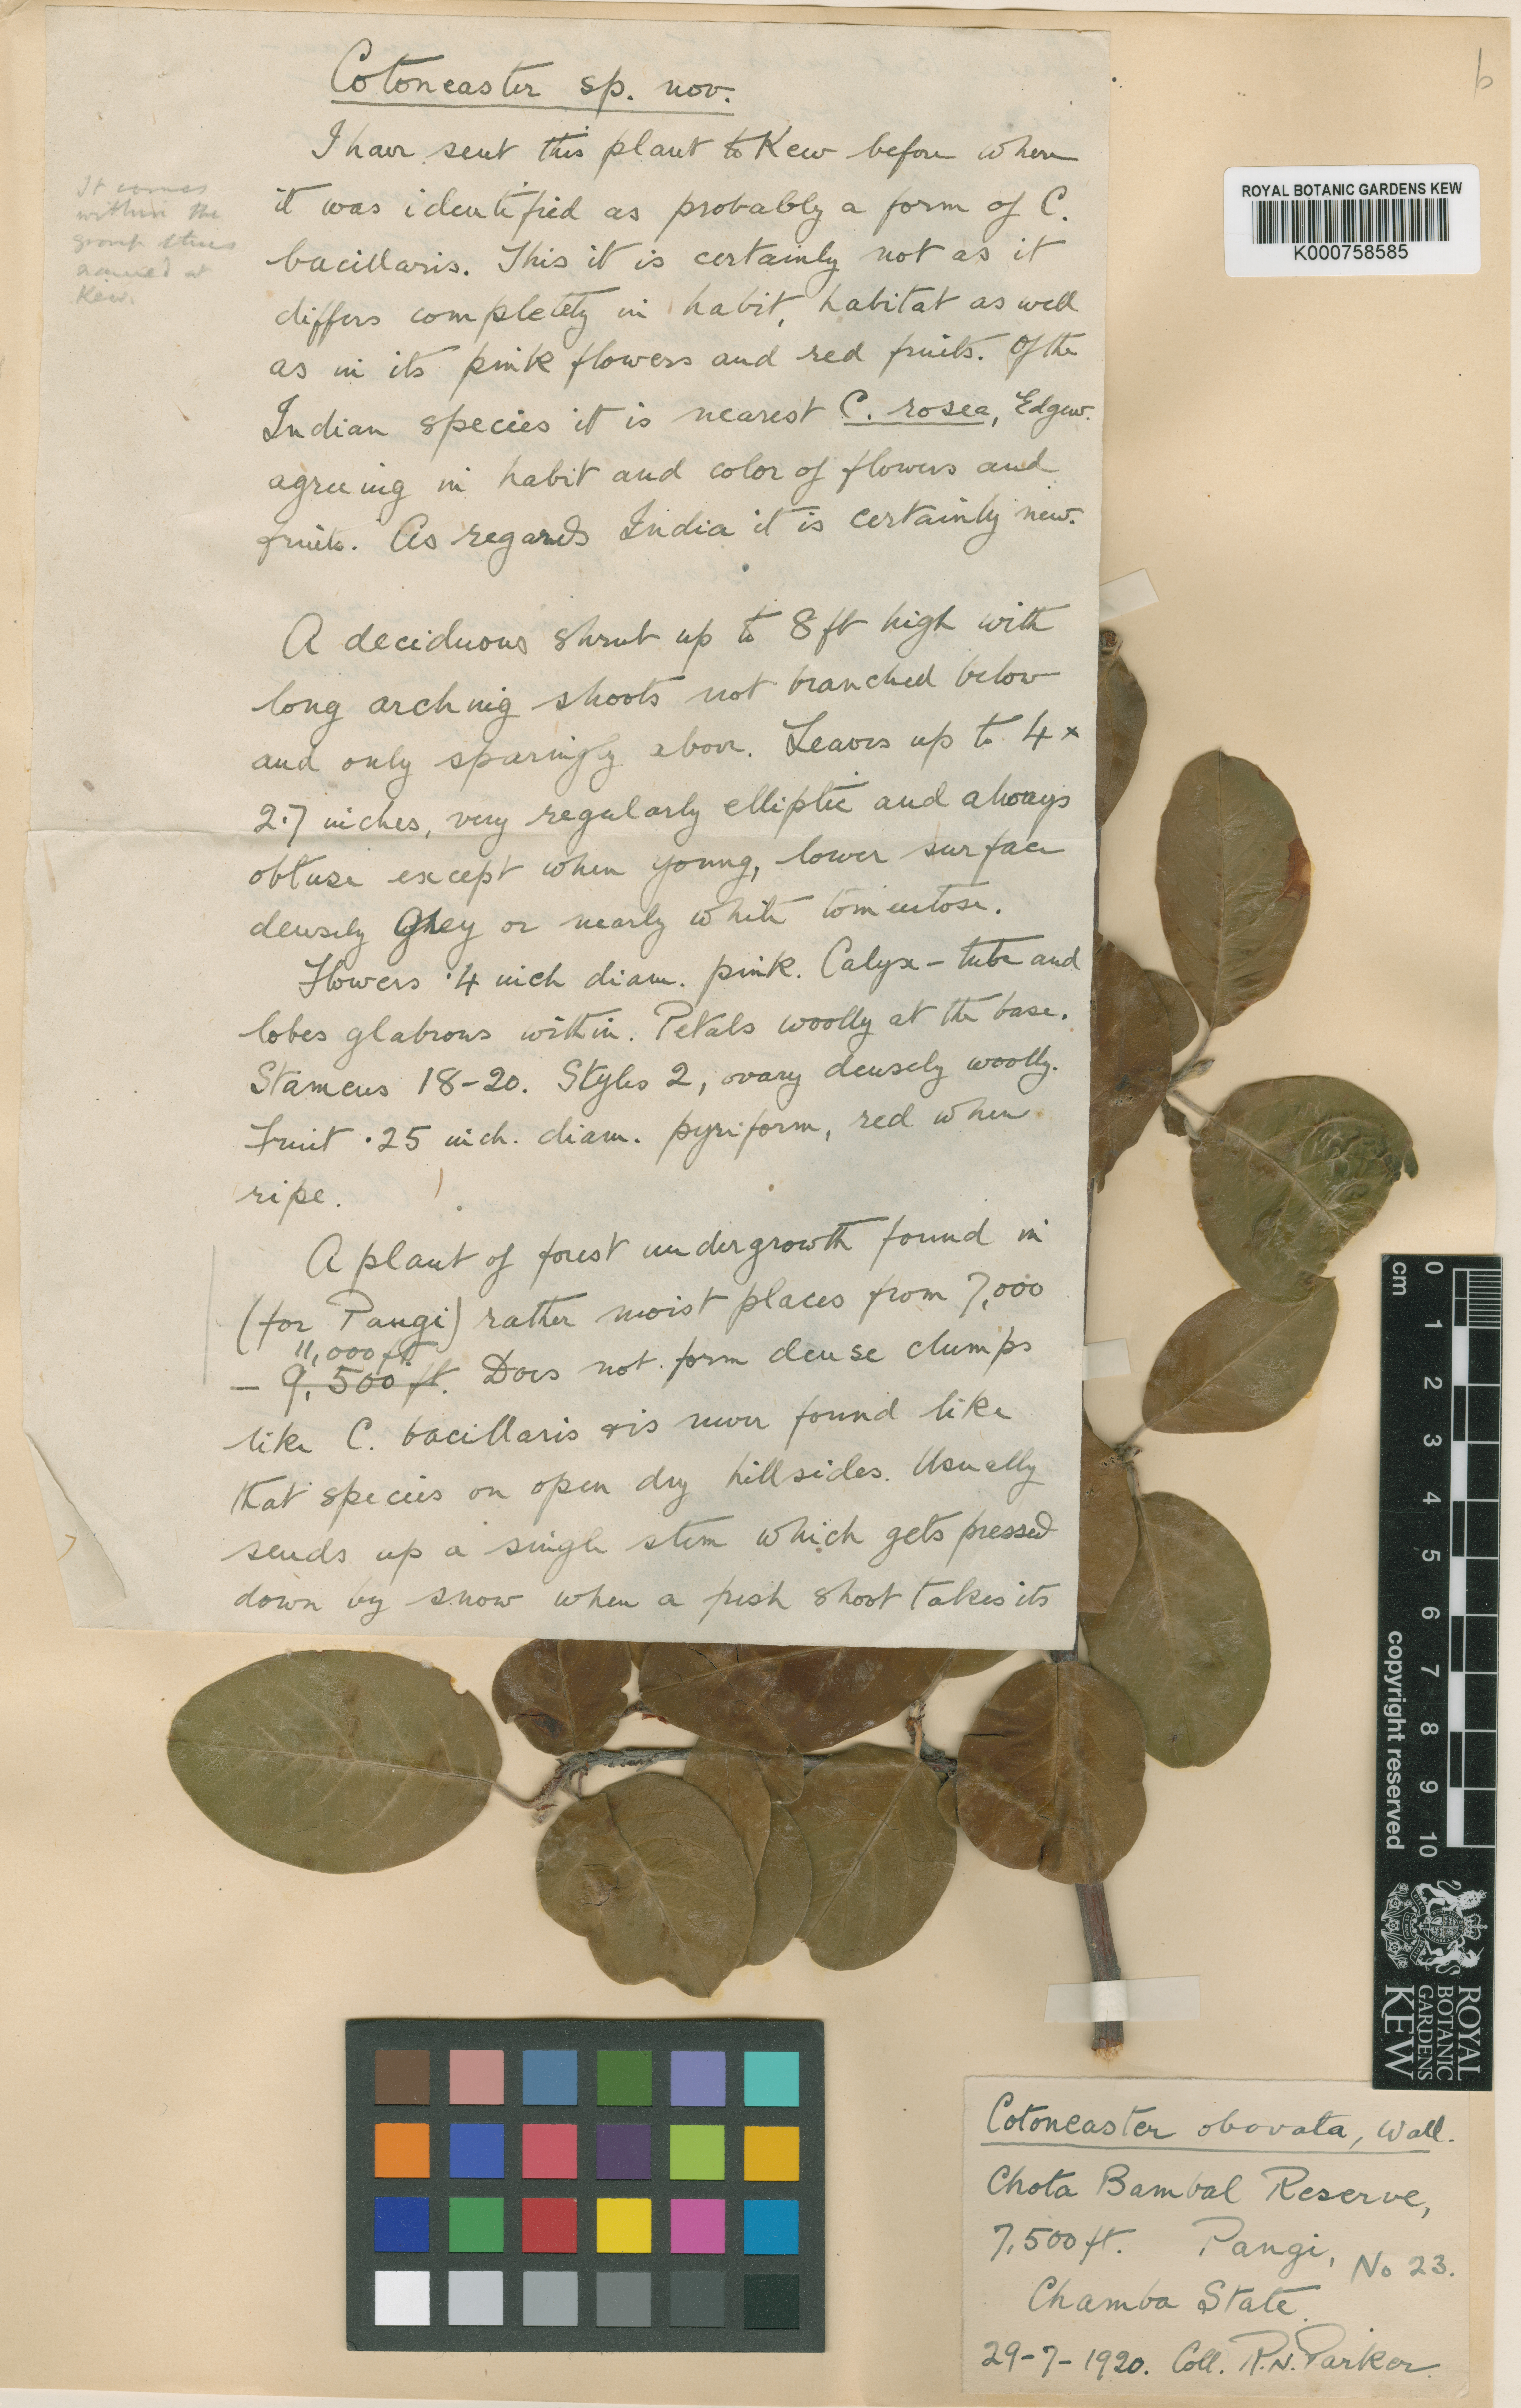 Cotoneaster sp. nov.
I have sent this plant to Kew before where
it was identified as probably a form of C.
bacillaris. This it is certainly not as it
differs completely in habit, habitat as well
as in its pink flowers and red fruits. Of the
Indian species it is nearest C. rosea, Edgew.
agreeing in habit and color of flowers and
fruits. As regards India it is certainly new.
It comes
within the
group thus
named at
Kew.
A deciduous shrub up to 8 ft high with
long arching shoots not branched below
and only sparingly above. Leaves up to 4 x
2.7 inches, very regularly elliptic and always
obtuse except when young, lower surface
densely grey or nearly white tomentose.
Flowers .4 inch diam. pink. Calyx-tube and
lobes glabrous within. Petals woolly at the base.
Stamens 18-20. Styles 2, ovary densely woolly.
Fruit .25 inch. diam. pyriform, red when
ripe.
A plant of forest undergrowth found in
(for Pangi) rather moist places from 7,000
11,000 ft
- 9,500 ft. Does not form dense clumps
like C. bacillaris & is never found like
that species on open dry hillsides. Usually
sends up a single stem which gets pressed
down by snow when a fresh shoot takes its
b
ROYAL BOTANIC GARDENS KEW
K000758585
cm 0 1 2 3 4 5 6 7 8 9 10
copyright reserved
ROYAL
BOTANIC
GARDENS
KEW
Cotoneaster obovata, Wall.
Chota Bambal Reserve,
7,500 ft. Pangi, No 23.
Chamba State.
29-7-1920. Coll. R.N. Parker.